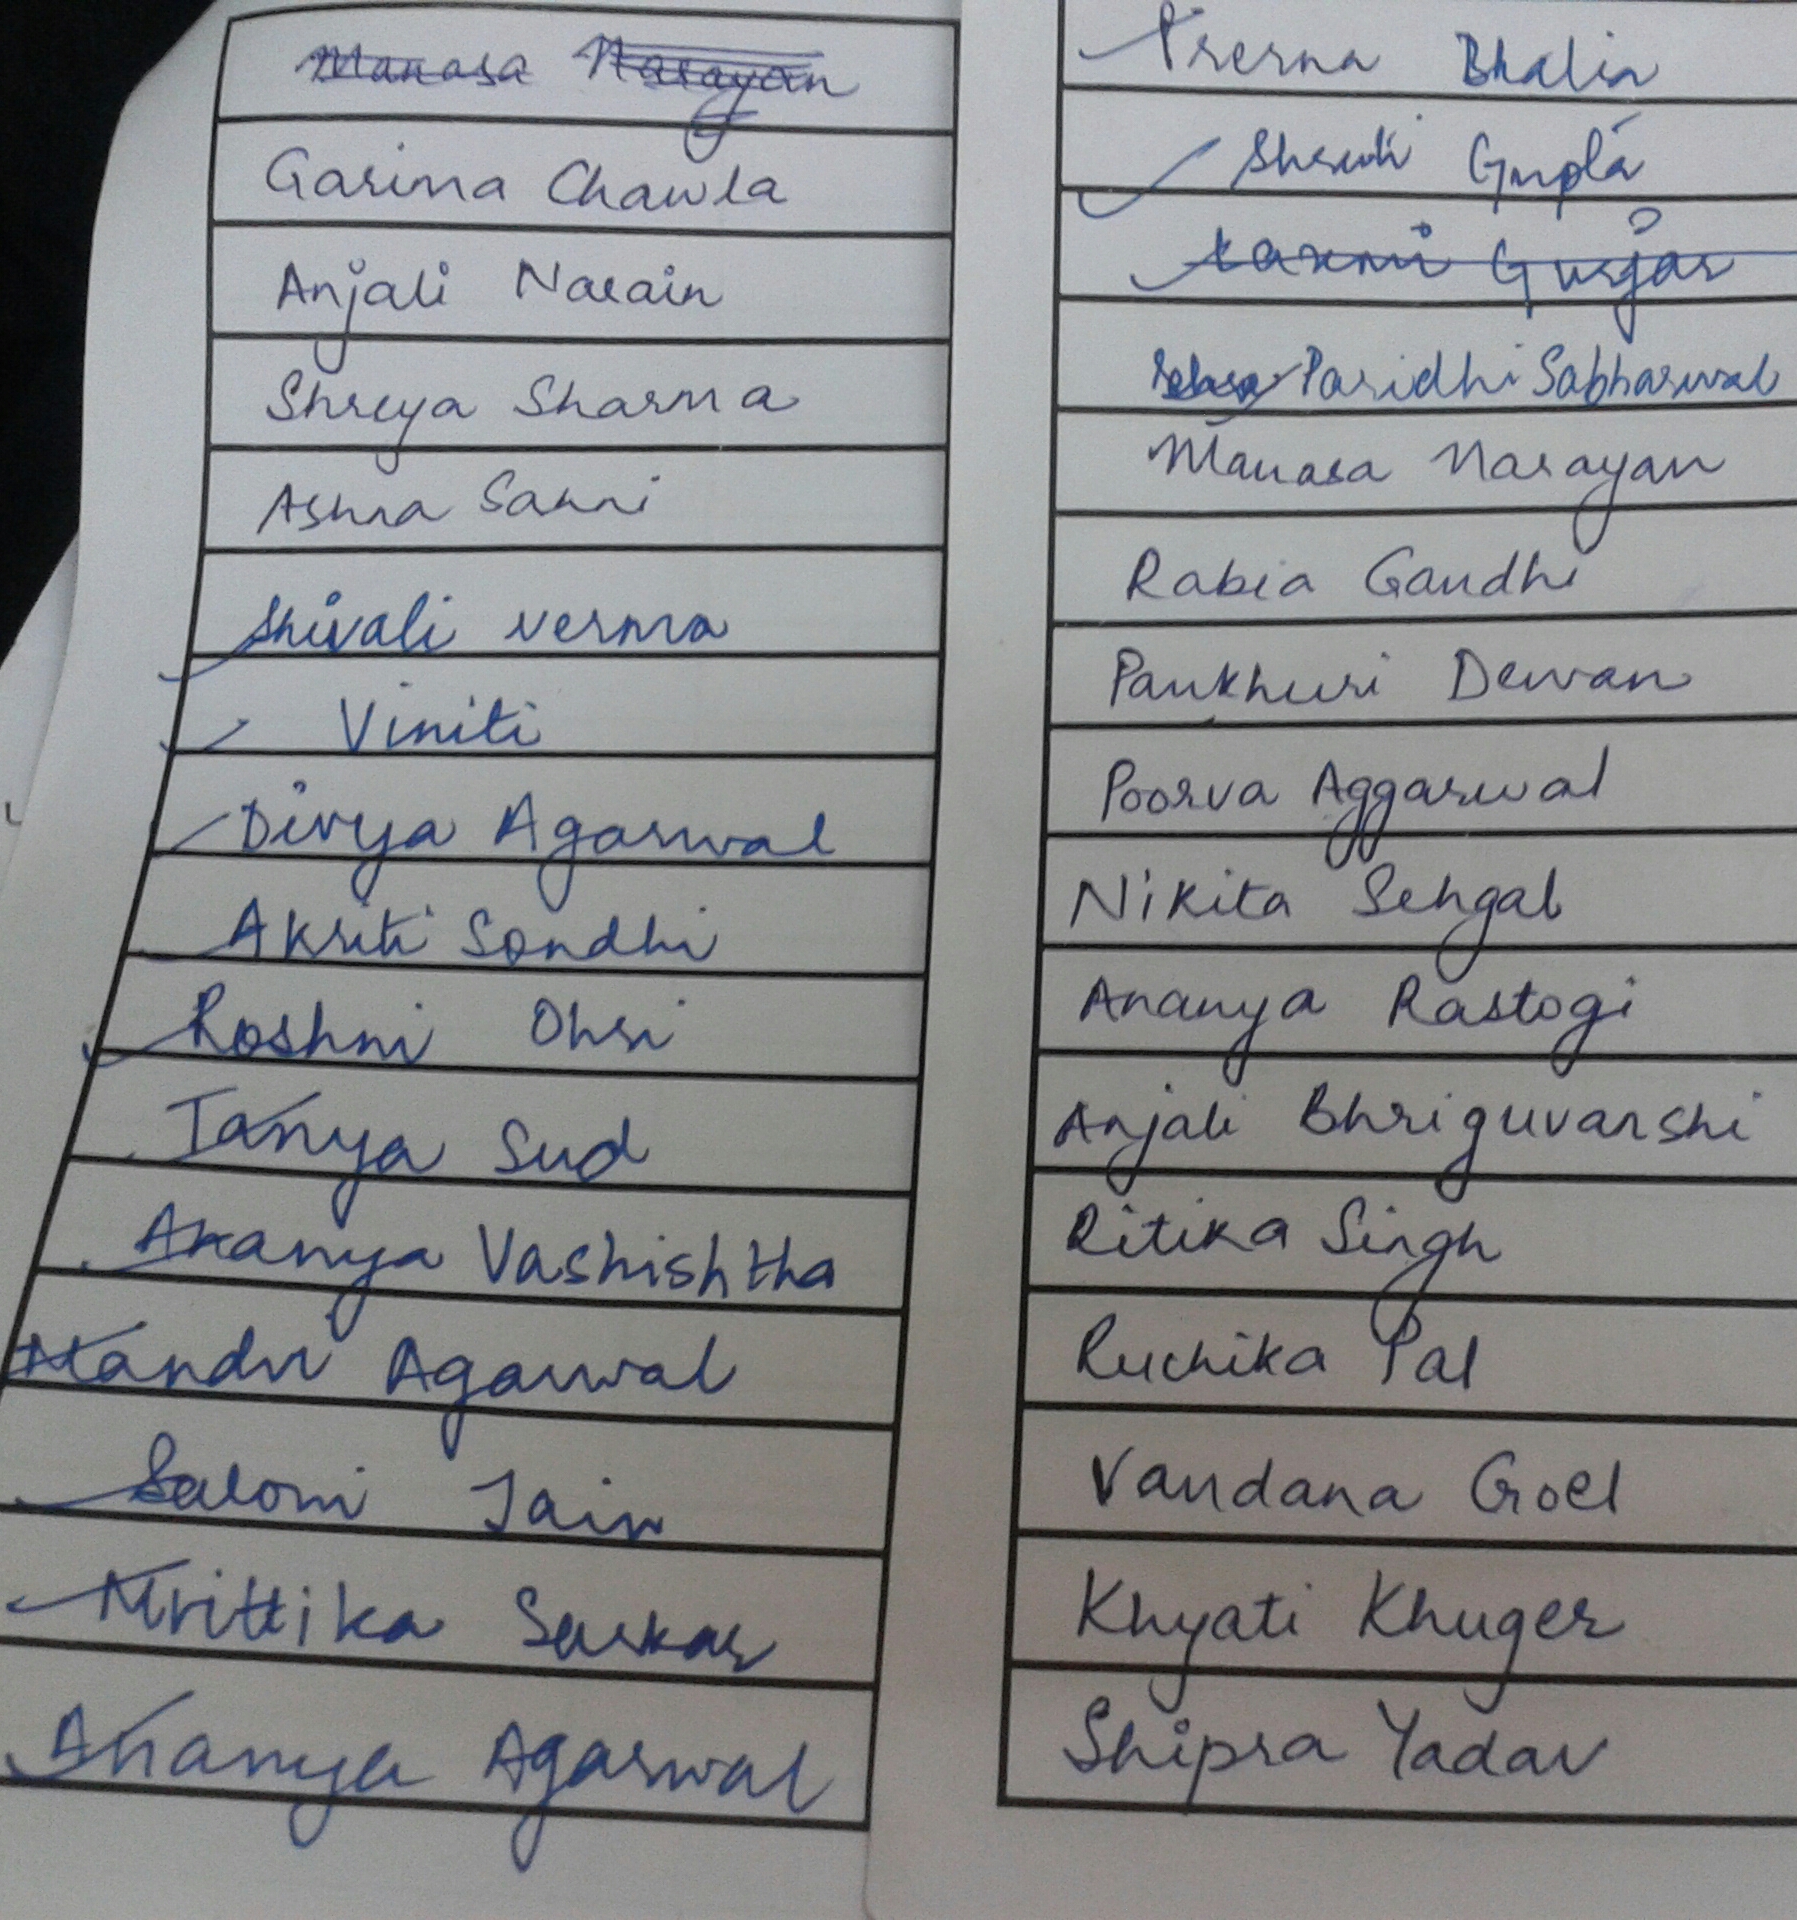 Manasa Narayan
Garima Chawla
Anjali Narain
Shreya Sharma
Ashna Sahni
Shivali verma
Viniti
Divya Agarwal
Akriti Sondhi
Roshni Ohri
Tanya Sud
Ananya Vashishtha
Nandni Agarwal
Saloni Jain
Mrittika Sarkar
Ananya Agarwal
Prerna Bhalia
Shruti Gupta
Laxmi Gurjar
Paridhi Sabharwal
Manasa Narayan
Rabia Gandhi
Pankhuri Dewan
Poorva Aggarwal
Nikita Sehgal
Ananya Rastogi
Anjali Bhriguvanshi
Ritika Singh
Ruchika Pal
Vandana Goel
Khyati Khuger
Shipra Yadav